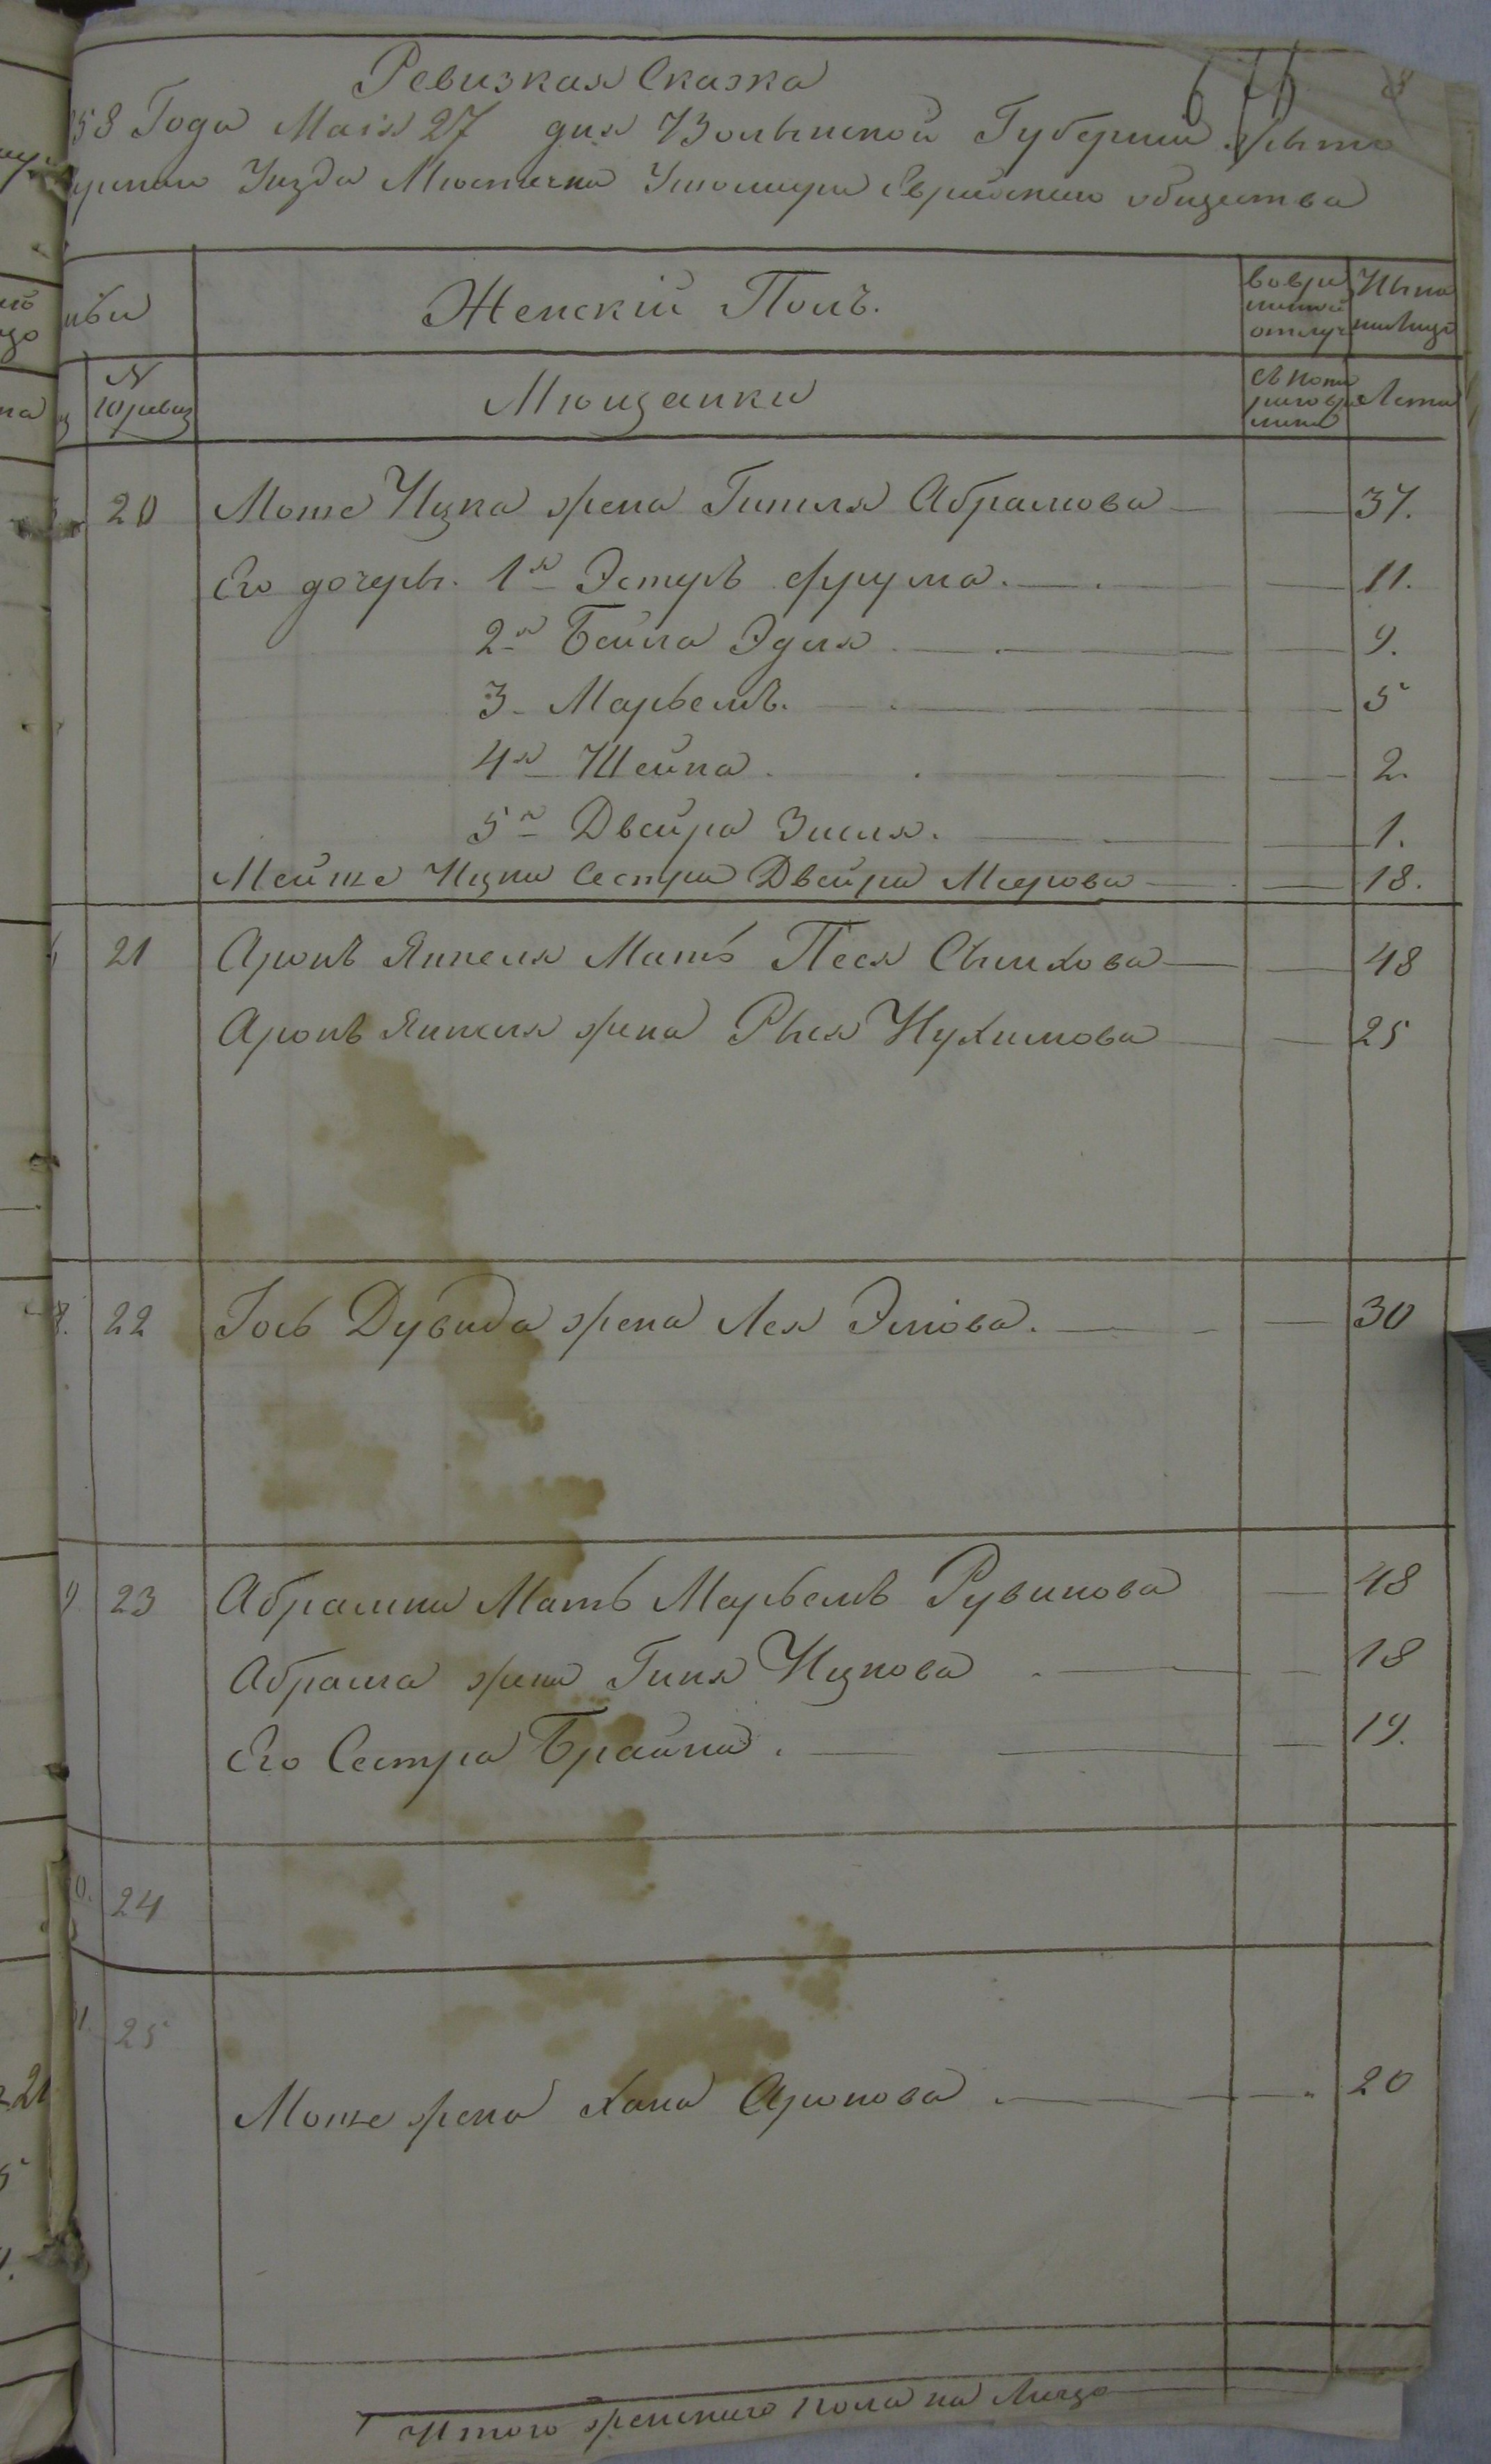 Ревизкая Сказка
58 Года Маія 27 дня Волынской Губерніи Жито
Уезда Мѣстечка Ушомира Еврейскаго общества
Женскій Полъ.
вовре
менной
отлуч
Ныне
налицо
N
10 ревиз
Мѣщанки
съ кото
раго вре
мени
Лета
20 Мошe Ицка жена Гитля Абрамова 37.
Его дочерь. 1я Эстуръ Фрума. 11.
2я Бейла Эдля 9.
3 Марьемъ. 5
4я Шейна 2.
5я Двейра Зисля. 1.
Мейше Ицки Сестра Двейра Меерова 18.
21 Аронъ Янкеля Мать Песя Сымхова 48
Аронъ Янкеля жена Рыся Нухимова 25
22 Іось Дувида жена Лея Эліова. 30
23 Абрамки Мать Марьемъ Рувинова 48
Абрама жена Гиня Ицкова 18
Его Сестра Брайна. 19.
24
25
Мошe жена Хана Аронова 20
Итого женскаго пола на Лицо